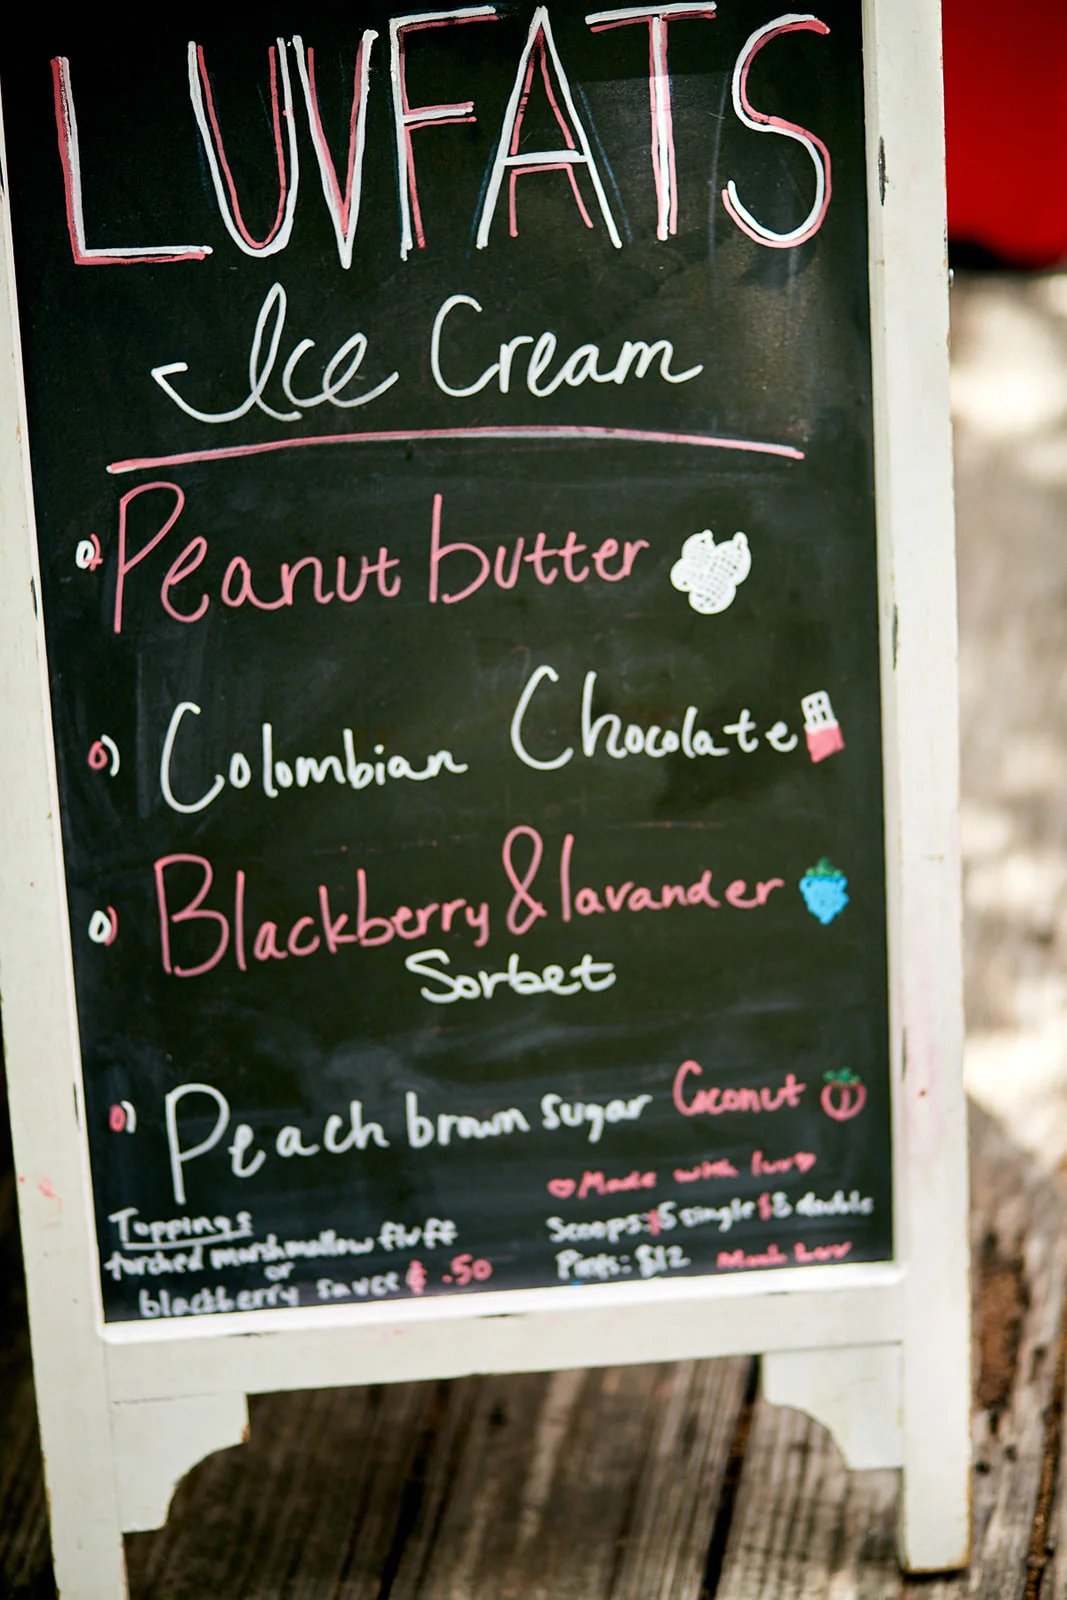 LUVFATS
Ice Cream
o) Peanut butter
o) Colombian Chocolate
o) Blackberry & lavander
Sorbet
o) Peach brown sugar Coconut
Made with luv
Toppings
torched marshmallow fluff
or
blackberry sauce .50
Scoops: $5 single $8 double
Pints: $12